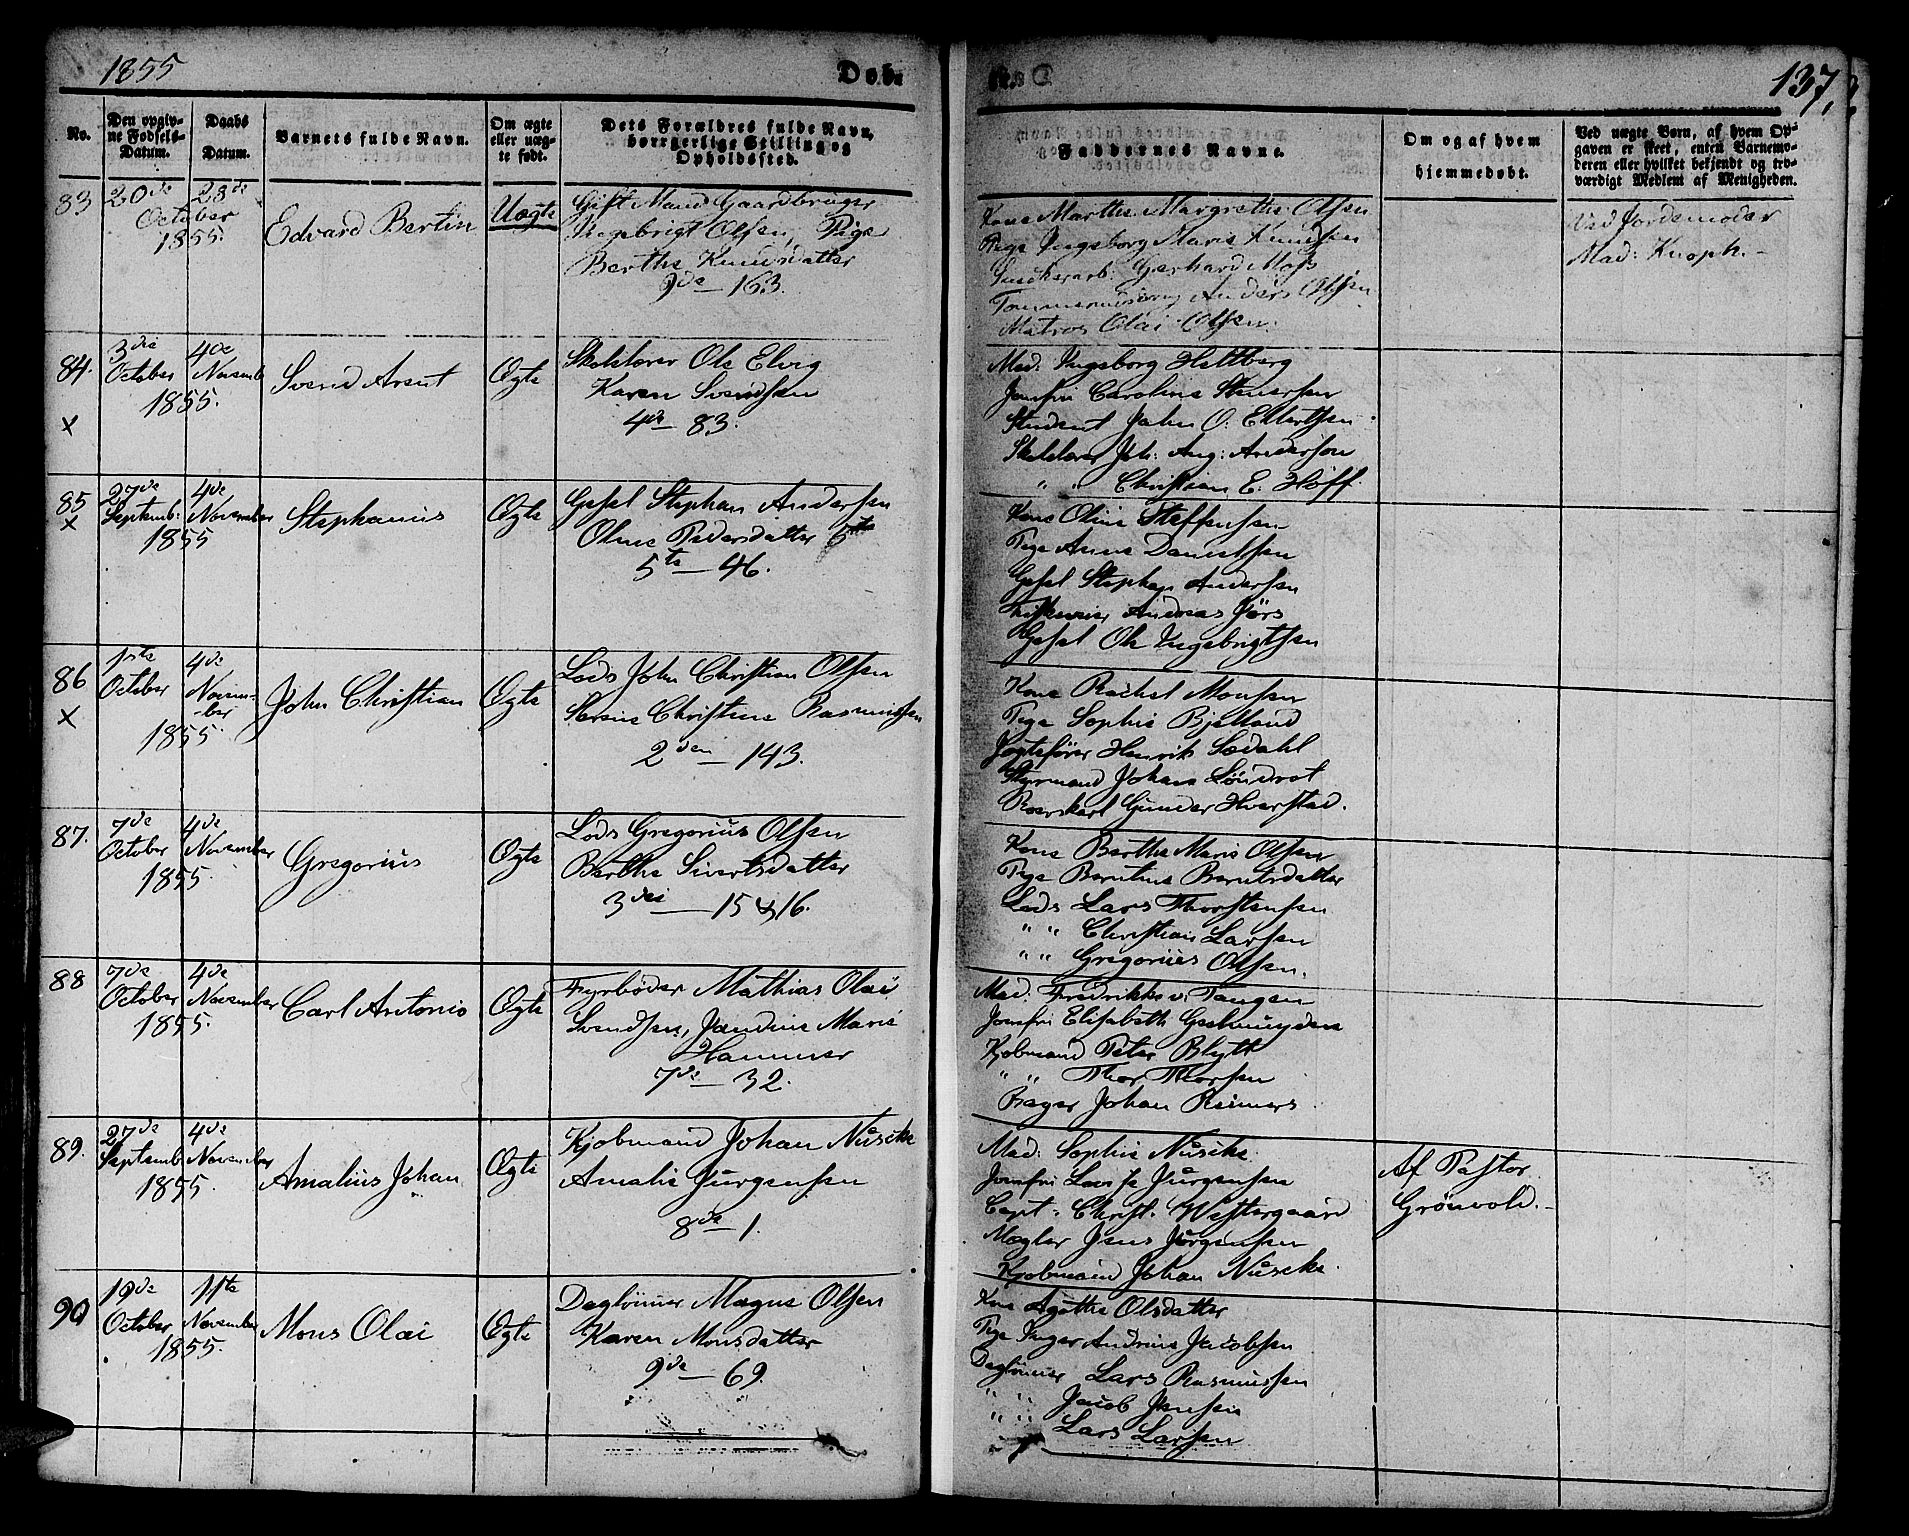 1855
Døb.
137,
No.
Den opgivne Fødsels-Datum.
Daabs Datum.
Barnets fulde Navn.
Om ægte eller uægte født.
Dets Forældres fulde Navn, borgerlige Stilling og Opholdssted.
Faddernes Navne.
Om og af hvem hjemmedøbt.
Ved uægte Børn, af hvem Opgaven er skeet, enten Barnemoderen eller hvilket bekjendt og troværdigt Medlem af Menigheden.
83
20de October 1855.
28de
Edvard Bertin
Uægte
Gift Mand Gaardbruger
Ingebrigt Olsen, Pige
Berthe Knudsdatter
9de — 163.
Kone Marthe Margrethe Olsen
Pige Ingeborg Marie Knudsen
Gerhard Moss
Anders Olsen
Matros Olai Olsen.
Ved Jordemoder
Mad: Knoph. –
84.
x
3die October
4de Novemb
1855.
Svend Arent
Ægte
Skolelærer Ole Elvig
Karen Svendsen
4de 83.
Mad: Ingeborg Heltberg
Jomfru Caroline Stenersen
Student John O. Ellertsen
Skolelærer Joh: Aug: Anderson
" " Christian E. Hoff.
85
x
27de Septemb:
4de November
1855
Stephanus
Ægte
Gesel Stephan Andersen
Oline Pedersdatter
5te — 46.
Kone Oline Steffensen
Pige Anne Danielsen
Gesel Stephan Andersen
Andreas Jørs
Gesel Ole Ingebrigtsen
86
x
1ste October
4de November
1855.
John Christian
Ægte
Lods John Christian Olsen
Serine Christine Rasmussen
2den — 143.
Kone Rachel Monsen
Pige Sophie Bjelland
Henrik Sædahl
Styrmand Johan
Gunder Hverstad.
87.
7de October
4de November
1855.
Gregorius
Ægte
Lods Gregorius Olsen
Berthe Sivertsdatter
3die — 15 & 16.
Kone Berthe Marie Olsen
Pige Berntine Berntsdatter
Lods Lars Thorstensen
" " Christian Larsen
" " Gregorius Olsen.
88
7de October
4de November
1855.
Carl Antonio
Ægte
Fyrbøder Mathias Olai
Svendsen, Jandine Marie
Hammer
7de — 32.
Mad: Fredrikke v. Tangen
Jomfru Elisabeth Geelmuyden
Kjøbmand Peter Blytt
" " Thor Thorsen
Bager Johan Reimers.
89.
27de Septemb
4de November
1855.
Amalius Johan
Ægte
Kjøbmand Johan Nuscke
Amalie Jürgensen
8de — 1.
Mad: Sophie Nuscke.
Jomfru Lovise Jürgensen
Capt: Christ: Westergaard
Mægler Jens Jürgensen
Kjøbmand Johan Nuscke.
Af Pastor
Grönvold. –
90
19de October
11te November
1855.
Mons Olai
Ægte
Daglønner Magne Olsen
Karen Monsdatter
9de — 69.
Kone Agathe Olsdatter
Pige Inger Andrine Jacobsen
Daglønner Lars Rasmussen
" " Jacob Jensen
" " Lars Larsen